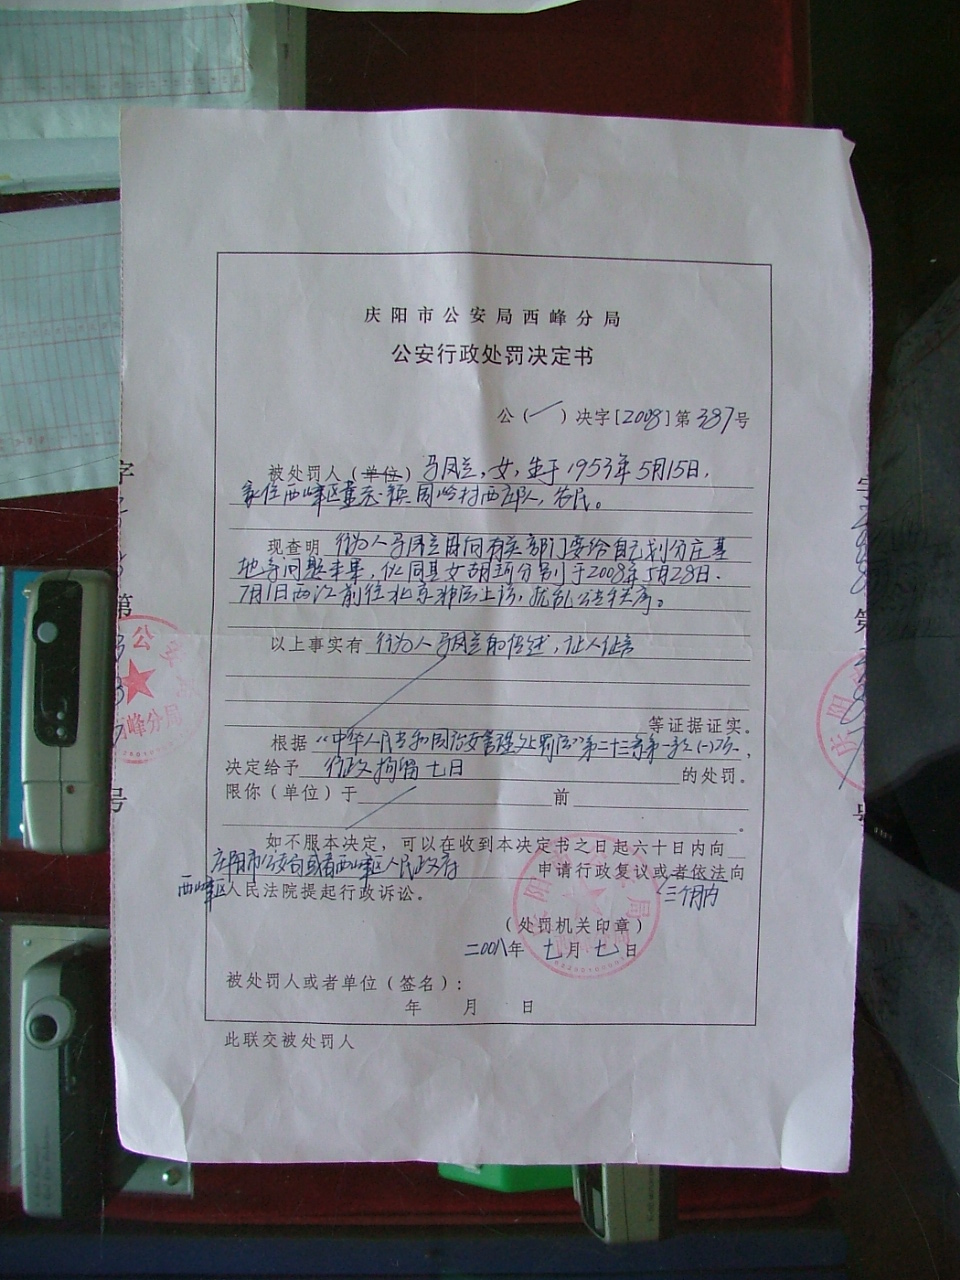 庆阳市公安局西峰分局
公安行政处罚决定书
公(一)决字[2008]第387号
被处罚人(单位) 马凤兰,女,生于1953年5月15日,
家住西峰区董志镇周岭村西庄队,农民。
现查明 行为人马凤兰因向有关部门要给自己划分庄基
地等问题未果,伙同其女胡 分别于2008年5月28日、
7月1日两次前往北京非法上访,扰乱公共秩序。
以上事实有 行为人马凤兰的陈述,证人证言
等证据证实。
根据 “中华人民共和国治安管理处罚法”第二十三条第一款(一)项,
决定给予 行政拘留七日 的处罚。
限你(单位)于 前
。
如不服本决定,可以在收到本决定书之日起六十日内向
庆阳市公安局或者西峰区人民政府 申请行政复议或者依法向
三个月内
西峰区人民法院提起行政诉讼。
(处罚机关印章)
二00八年 七月 七日
被处罚人或者单位(签名):
年 月 日
此联交被处罚人
字
第
号
公安
西峰分局
庆阳
字
第
号